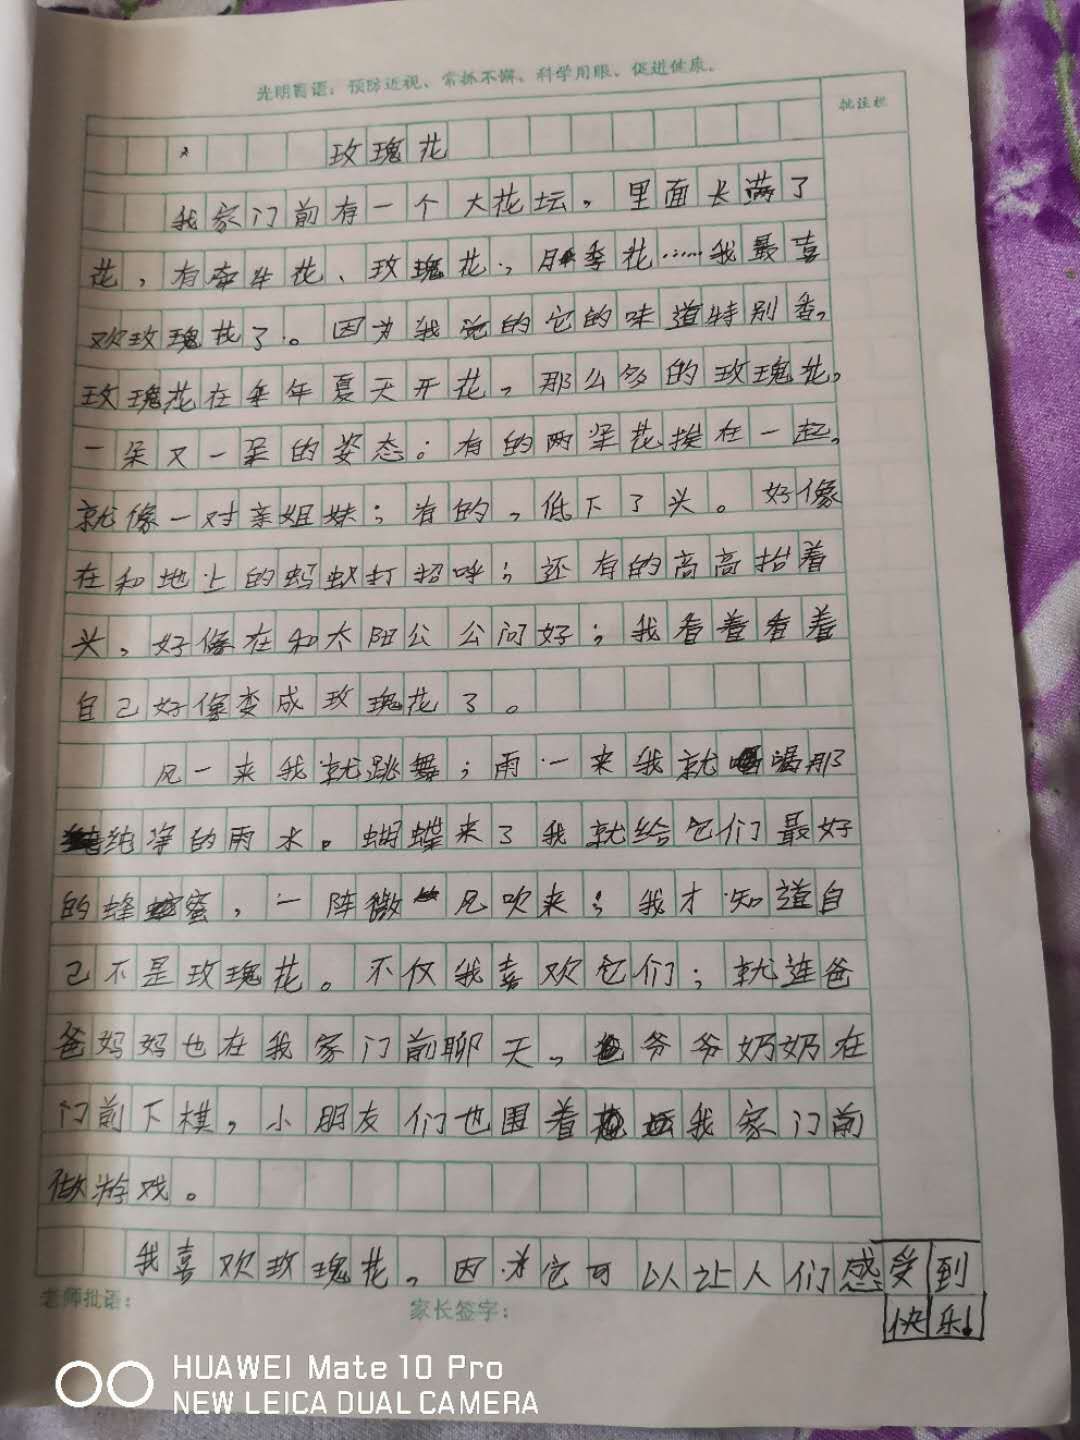 光明寄语：预防近视、常抓不懈、科学用眼、促进健康。
批注栏
玫瑰花
我家门前有一个大花坛，里面长满了
花，有牵牛花、玫瑰花，月季花……我最喜
欢玫瑰花了。因为我觉的它的味道特别香，
玫瑰花在每年夏天开花，那么多的玫瑰花，
一朵又一朵的姿态：有的两朵花挨在一起，
就像一对亲姐妹；有的，低下了头。好像
在和地上的蚂蚁打招呼；还有的高高抬着
头，好像在和太阳公公问好；我看着看着
自己好像变成玫瑰花了。
风一来我就跳舞；雨一来我就喝那
纯净的雨水。蝴蝶来了我就给它们最好
的蜂蜜，一阵微风吹来；我才知道自
己不是玫瑰花。不仅我喜欢它们；就连爸
爸妈妈也在我家门前聊天，爷爷奶奶在
门前下棋，小朋友们也围着我家门前
做游戏。
我喜欢玫瑰花，因为它可以让人们感受到
快乐！
老师批语： 家长签字：
HUAWEI Mate 10 Pro
NEW LEICA DUAL CAMERA